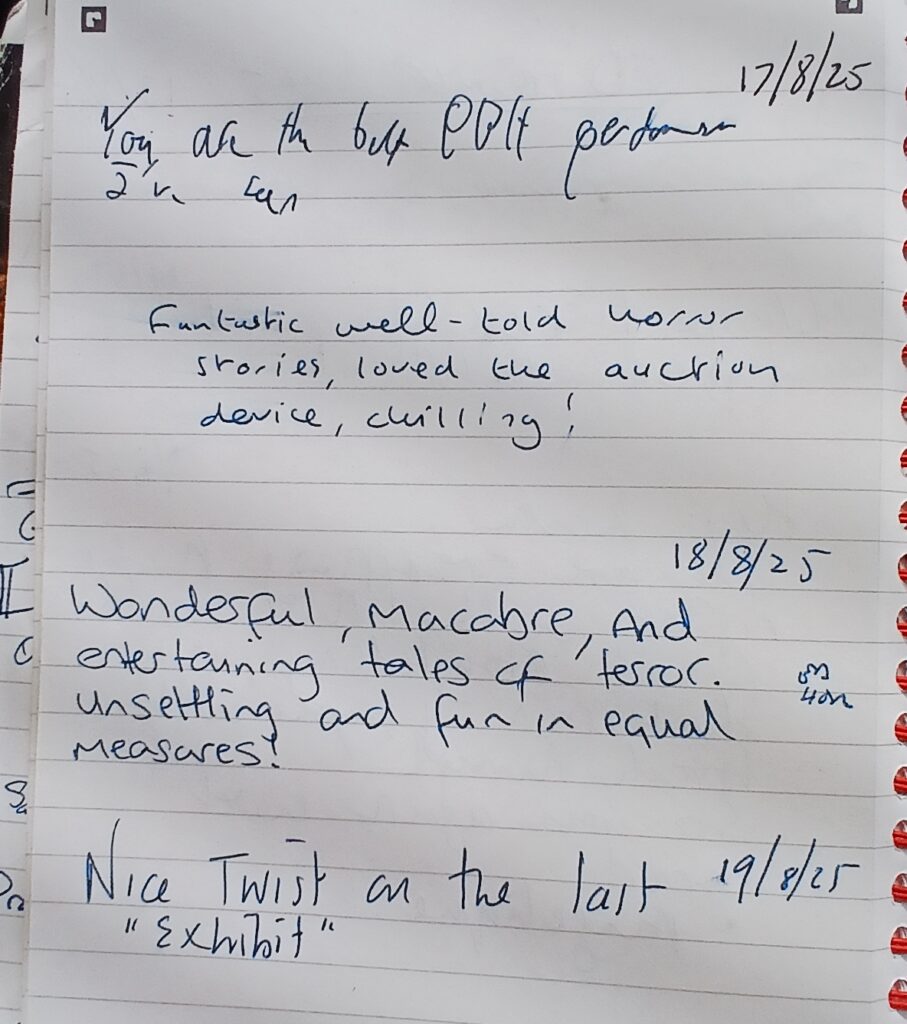 17/8/25
You are the best performer
Fantastic well-told horror
stories, loved the auction
device, chilling!
18/8/25
Wonderful, Macabre, And
entertaining tales of terror.
Unsettling and fun in equal
measures!
Nice Twist on the last 19/8/25
"Exhibit"